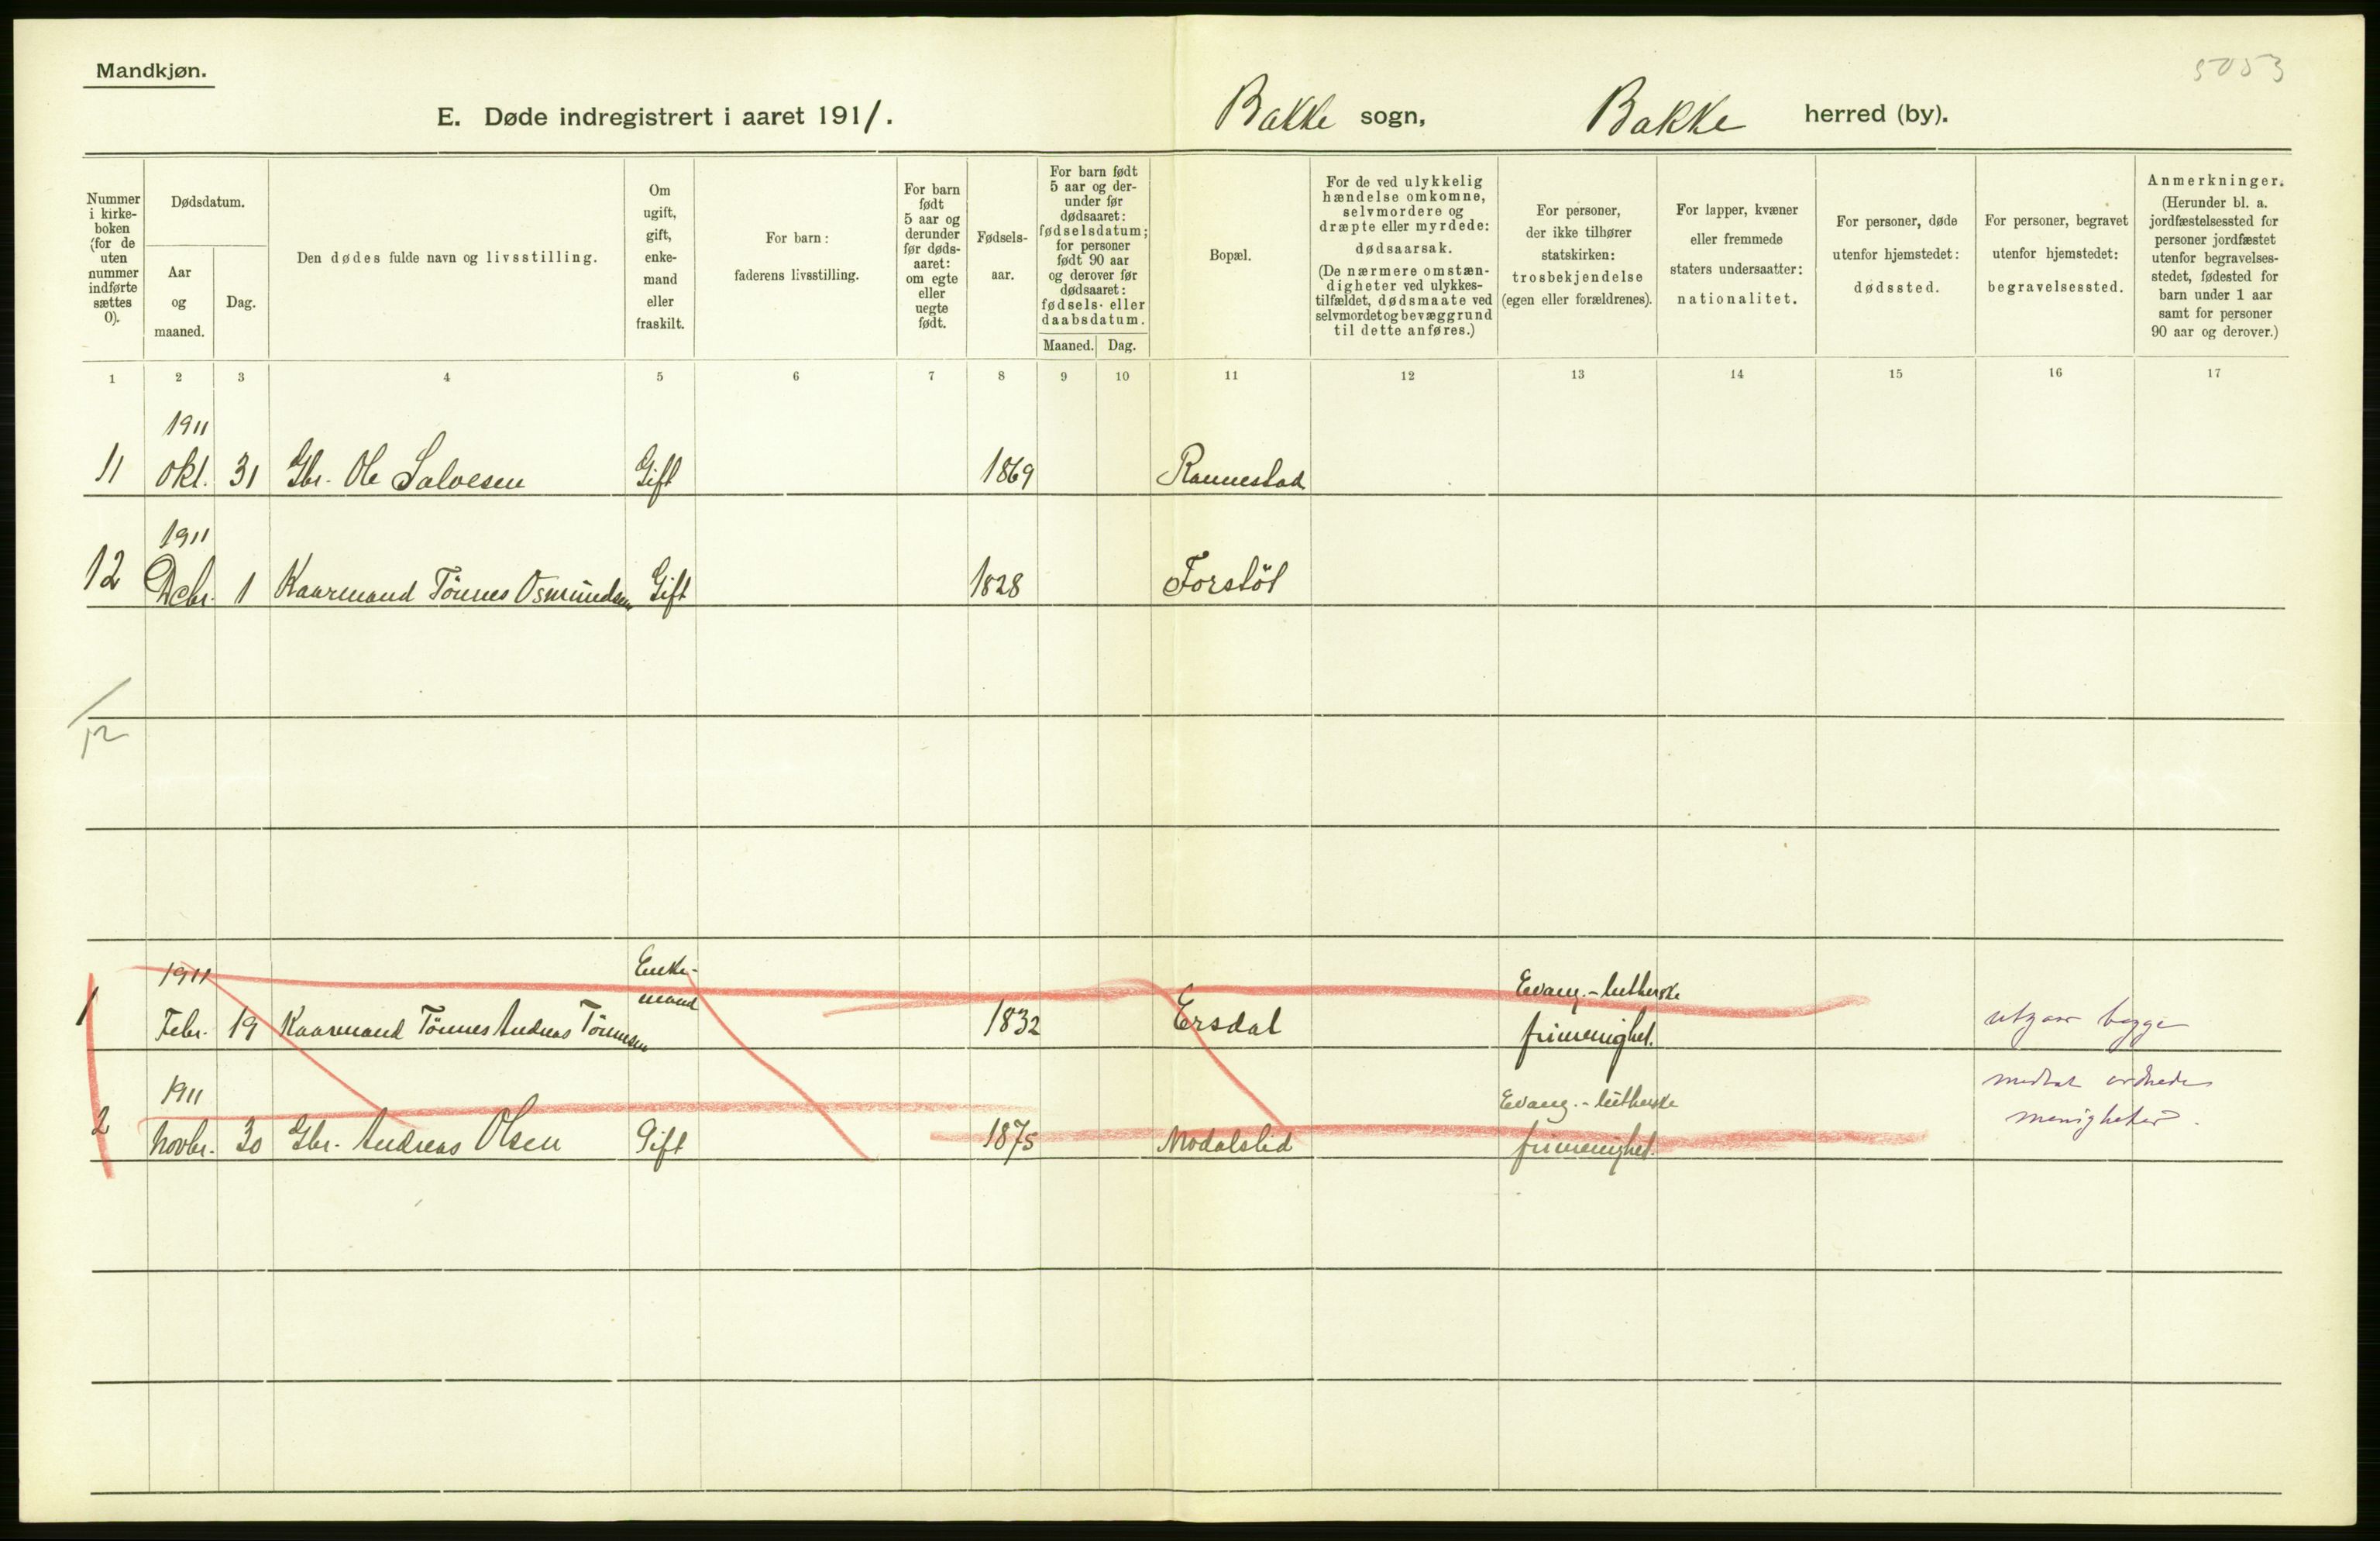 Mandkjøn.
5053
E. Døde indregistrert i aaret 1911.
Bakke sogn, Bakke herred (by).
Nummer i kirke-boken (for de uten nummer indførte sættes 0).
Dødsdatum.
Aar og maaned.
Dag.
Den dødes fulde navn og livsstilling.
Om ugift, gift, enke-mand eller fraskilt.
For barn: faderens livsstilling.
For barn født 5 aar og derunder før døds-aaret: om egte eller uegte født.
Fødsels-aar.
For barn født 5 aar og der-under før dødsaaret: fødselsdatum; for personer født 90 aar og derover før dødsaaret: fødsels- eller daabsdatum.
Maaned. Dag.
Bopæl.
For de ved ulykkelig hændelse omkomne, selvmordere og dræpte eller myrdede: dødsaarsak. (De nærmere omstæn-digheter ved ulykkes-tilfældet, dødsmaate ved selvmordet og bevæggrund til dette anføres.)
For personer, der ikke tilhører statskirken: trosbekjendelse (egen eller forældrenes).
For lapper, kvæner eller fremmede staters undersaatter: nationalitet.
For personer, døde utenfor hjemstedet: dødssted.
For personer, begravet utenfor hjemstedet: begravelsessted.
Anmerkninger. (Herunder bl. a. jordfæstelsessted for personer jordfæstet utenfor begravelses-stedet, fødested for barn under 1 aar samt for personer 90 aar og derover.)
1 2 3 4 5 6 7 8 9 10 11 12 13 14 15 16 17
1911
11 Okt. 31 Gbr. Ole Salvesen Gift 1869 Rannestad
1911
12 Dcbr. 1 Kaarmand Tönnes Osmundsen Gift 1828 Forstöl
12
1911 Enke- Evang.-lutherske
1 Febr. 19 Kaarmand Tönnes Andreas Tönnesen mand 1832 Ersdal frimenighet.
utgaar begge
1911 Evang.-lutherske
medtat
2 Novbr. 30 Gbr. Andreas Olsen Gift 1875 Modalslid frimenighet.
menigheter.